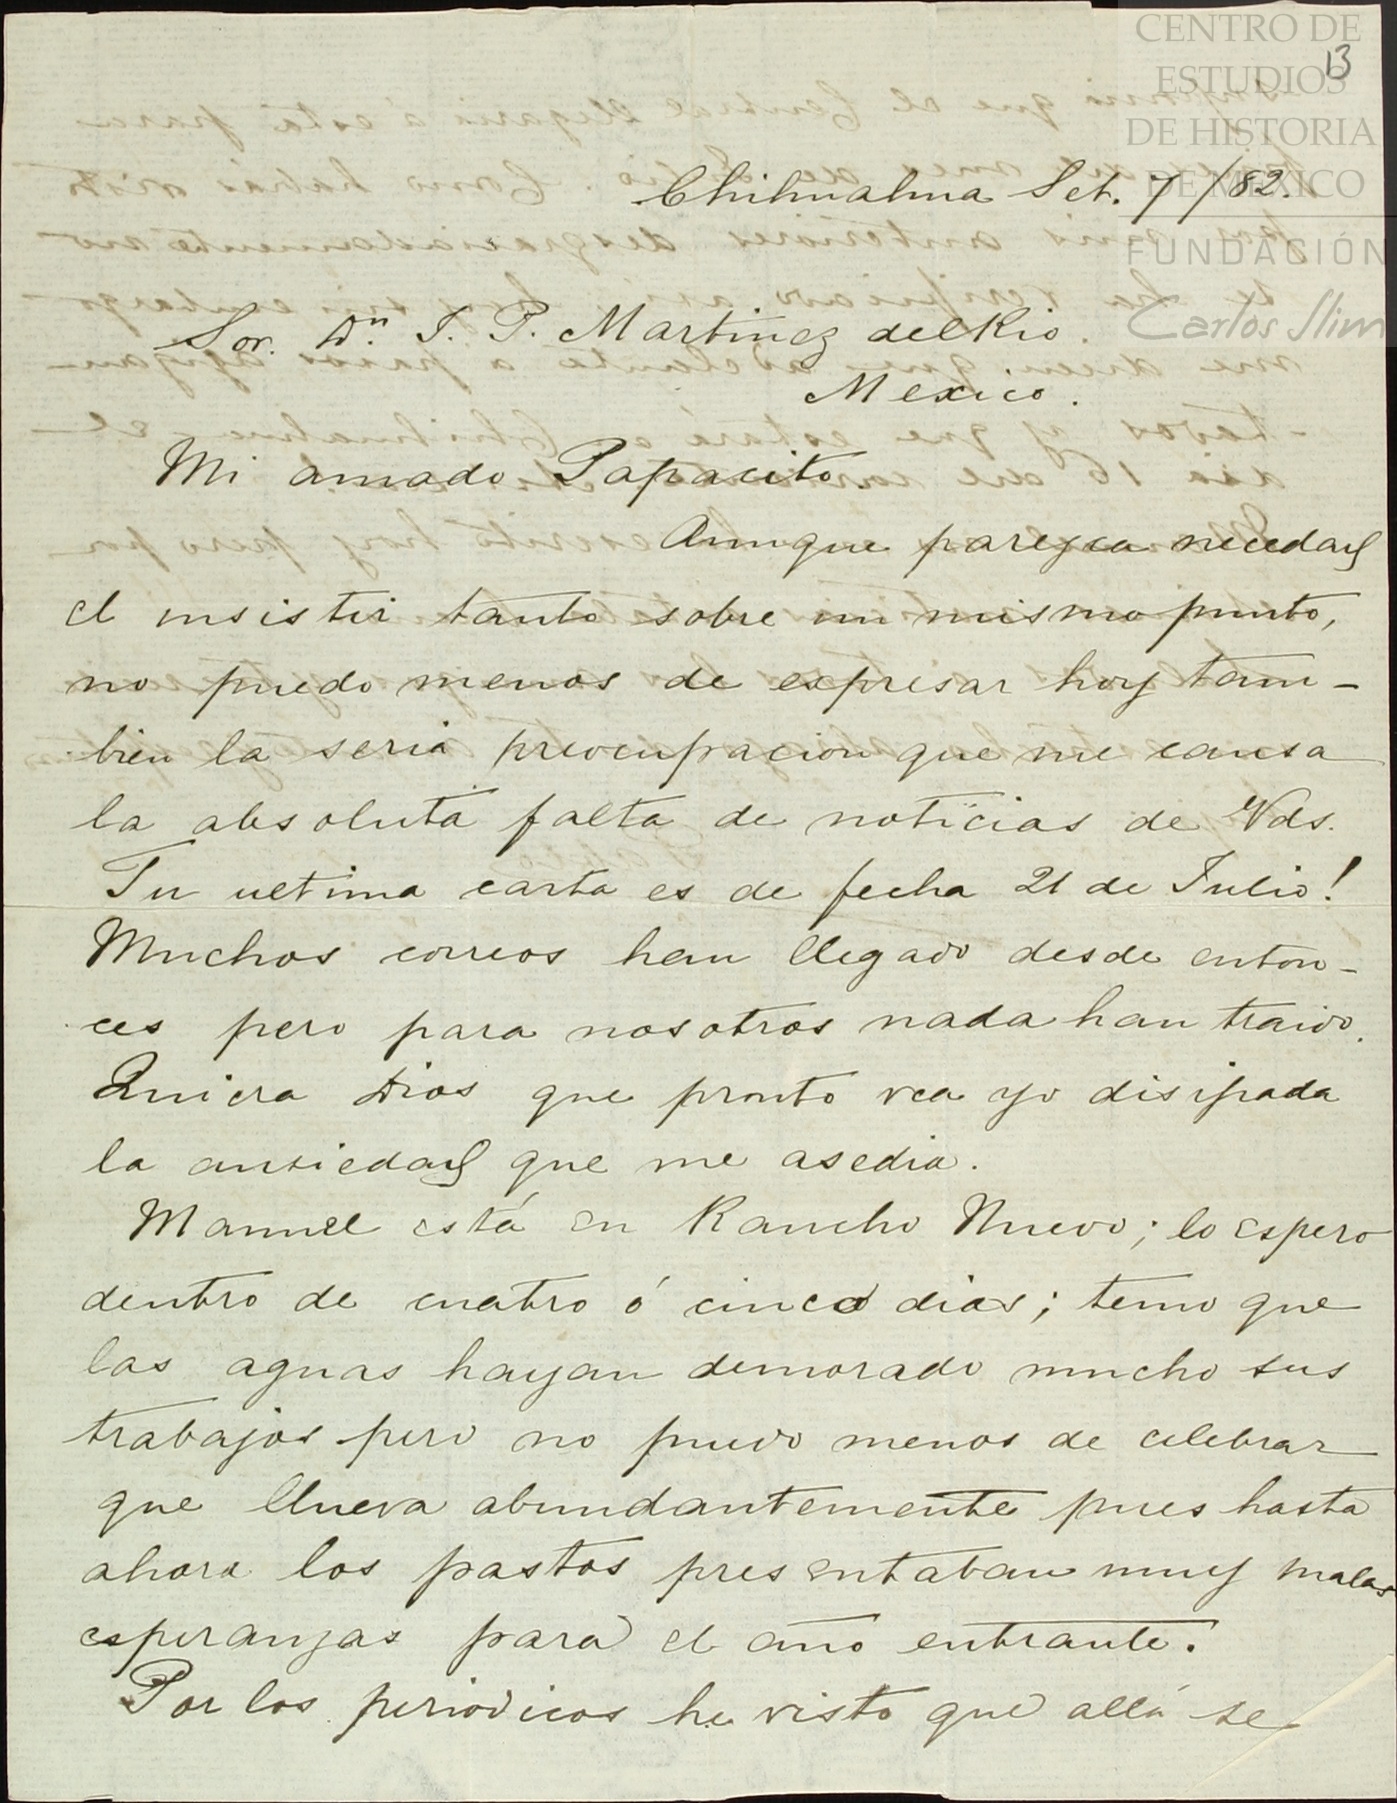 CENTRO DE
ESTUDIOS
DE HISTORIA
DE MÉXICO
FUNDACIÓN
Carlos Slim
13
Chihuahua Set. 7/82.
Sor. Dn. J. P. Martinez del Rio.
Mexico.
Mi amado Papacito.
Aunque parezca necedad
el insistir tanto sobre un mismo punto,
no puedo menos de expresar hoy tam-
bien la seria preocupacion que me causa
la absoluta falta de noticias de Vds.
Tu ultima carta es de fecha 21 de Julio!
Muchos correos han llegado desde enton-
ces pero para nosotros nada han traido.
Quiera Dios que pronto vea yo disipada
la ansiedad que me asedia.
Manuel está en Rancho Nuevo; lo espero
dentro de cuatro ó cinco dias; temo que
las aguas hayan demorado mucho sus
trabajos pero no puedo menos de celebrar
que llueva abundantemente pues hasta
ahora los pastos presentaban muy malas
esperanzas para el año entrante.
Por los periodicos he visto que allá se